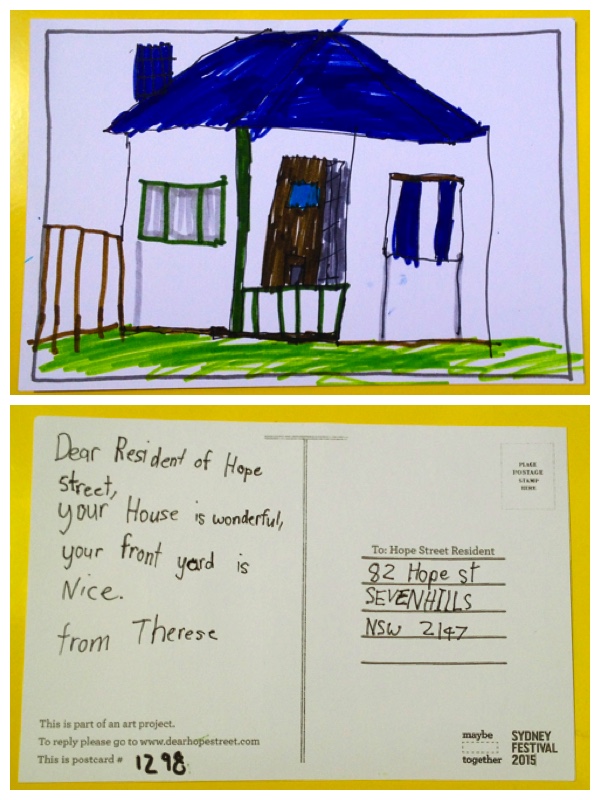 Dear Resident of Hope
street,
your House is wonderful,
your front yard is
Nice.
from Therese
This is part of an art project.
To reply please go to www.dearhopestreet.com
This is postcard # 1298
PLACE
POSTAGE
STAMP
HERE
To: Hope Street Resident
82 Hope st
SEVENHILLS
NSW 2147
maybe
together
SYDNEY
FESTIVAL
2015